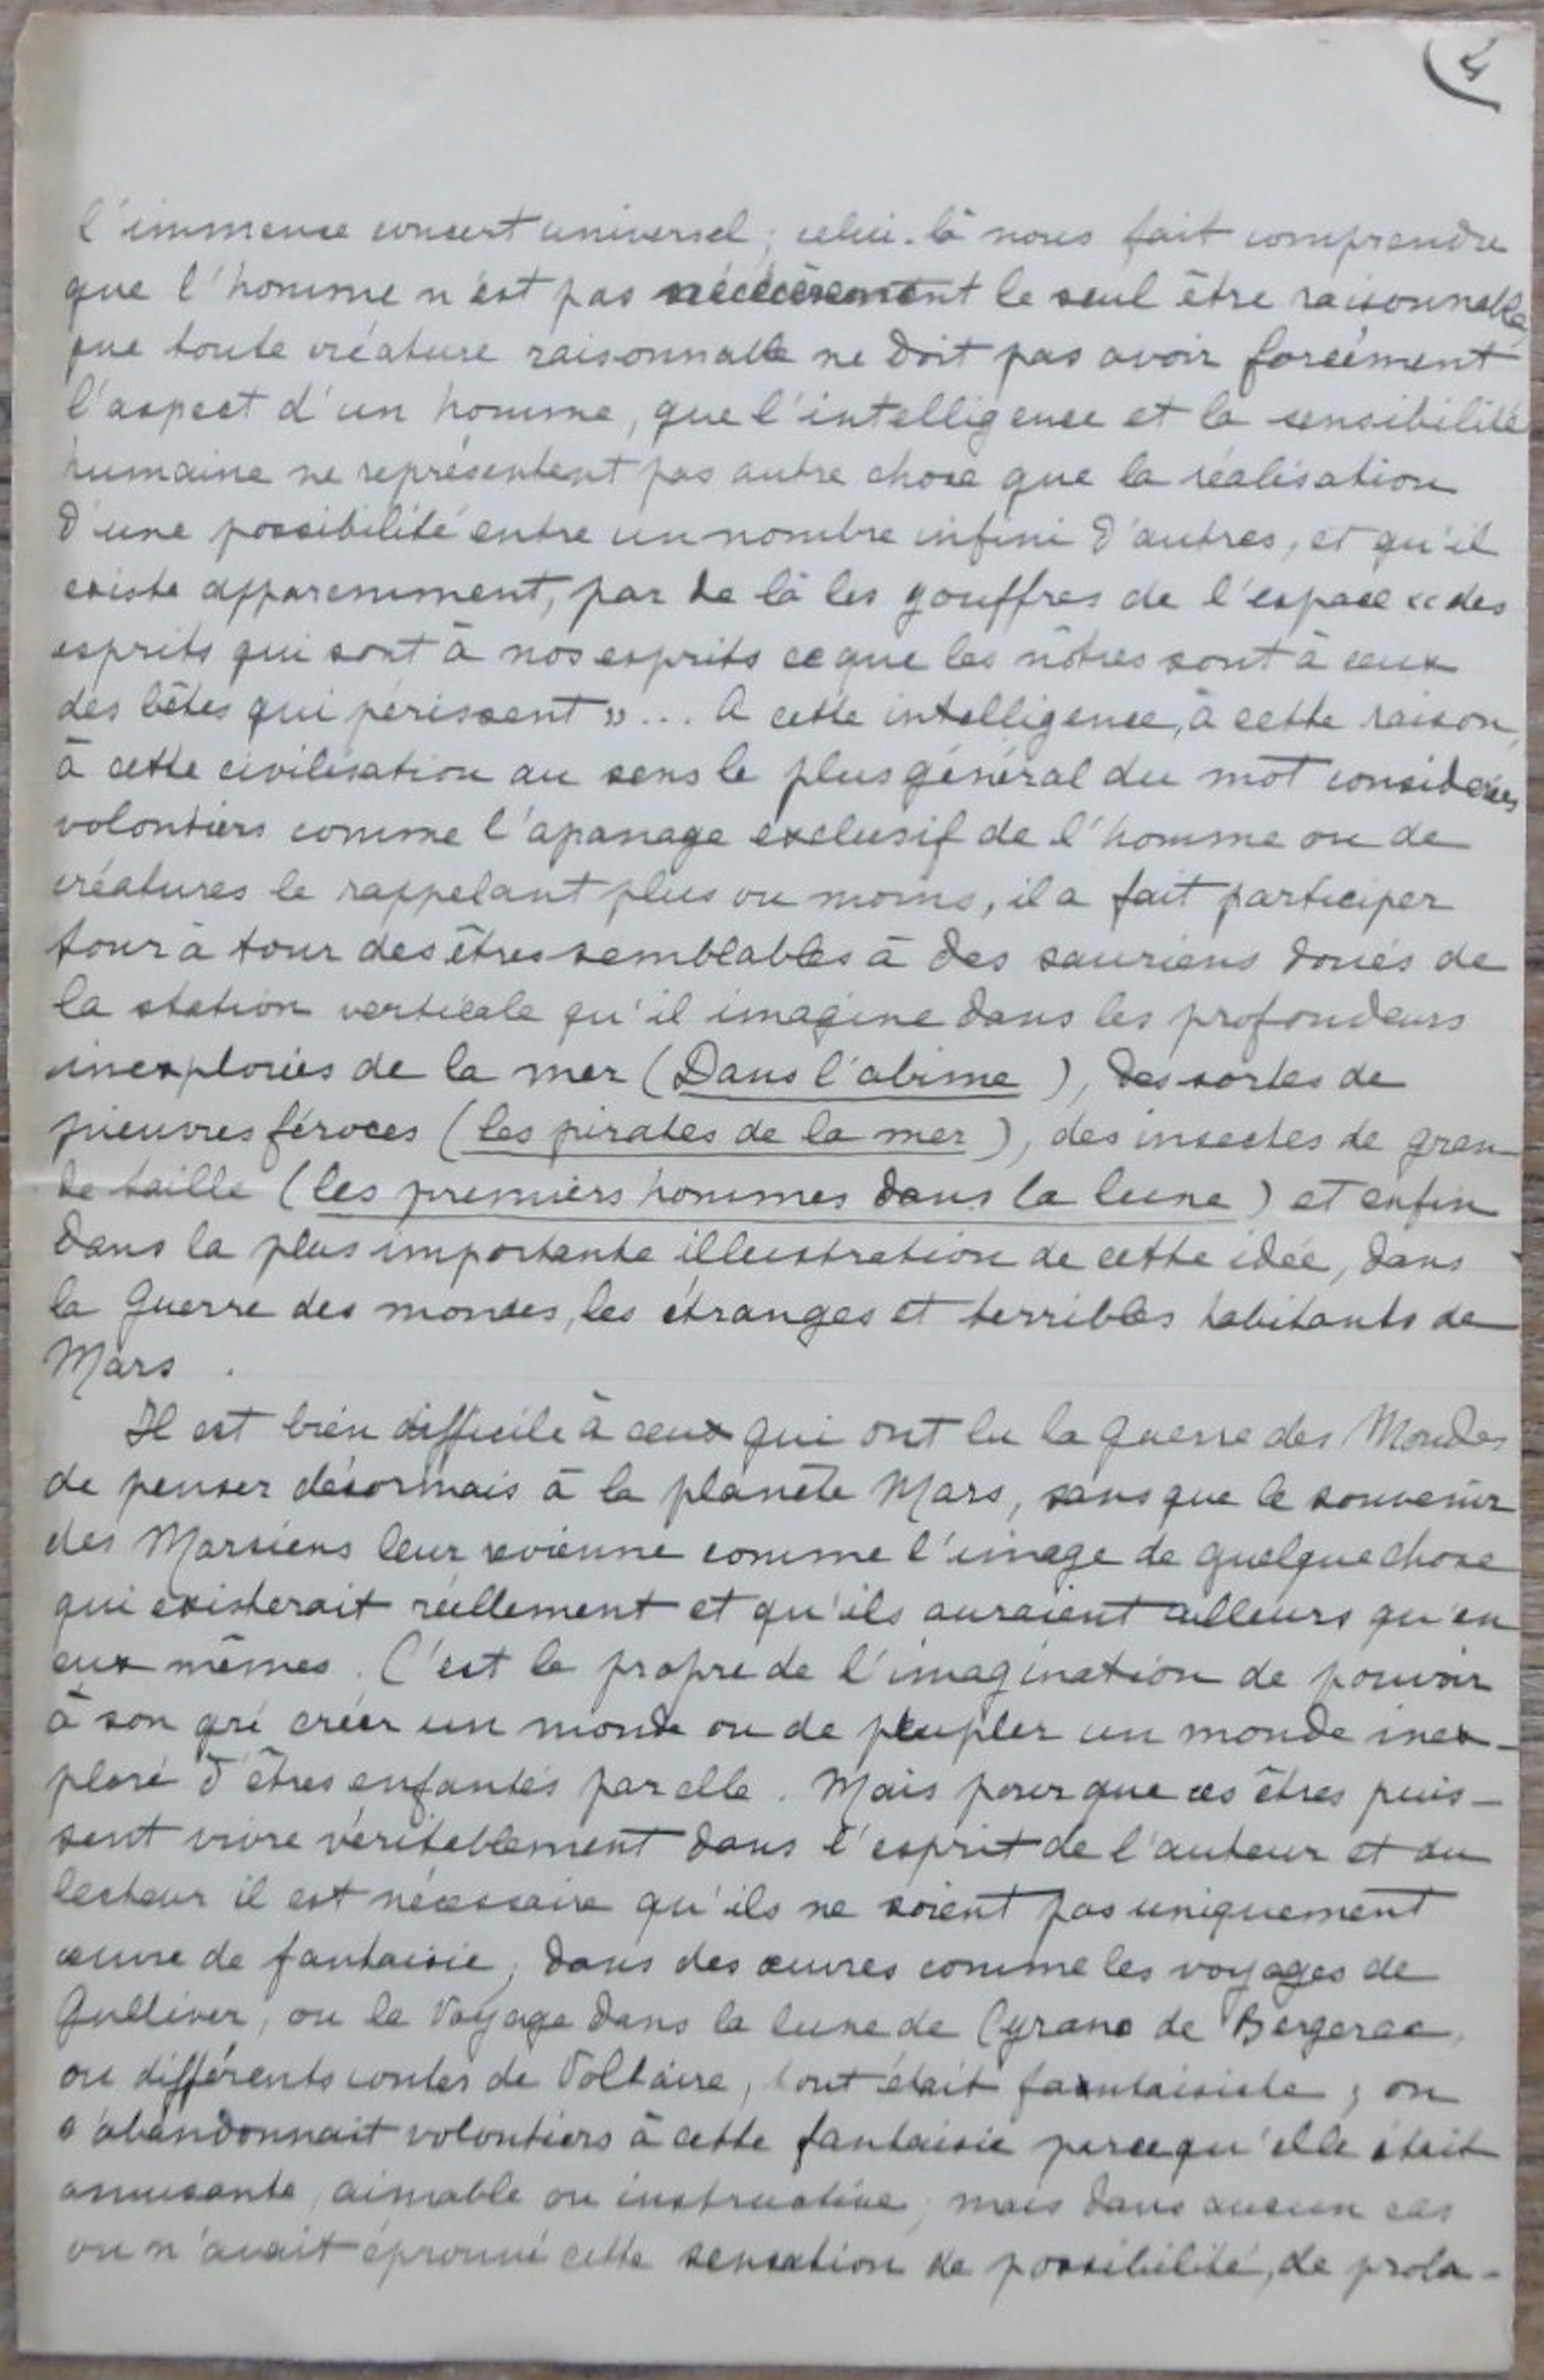 4
l'immense concert universel ; celui-là nous fait comprendre
que l'homme n'est pas nécécèrement le seul être raisonnable,
que toute créature raisonnable ne doit pas avoir forcément
l'aspect d'un homme, que l'intelligence et la sensibilité
humaine ne représentent pas autre chose que la réalisation
d'une possibilité entre un nombre infini d'autres, et qu'il
existe apparemment, par de là les gouffres de l'espace « des
esprits qui sont à nos esprits ce que les nôtres sont à ceux
des bêtes qui périssent »... A cette intelligence, à cette raison,
à cette civilisation au sens le plus général du mot considérées
volontiers comme l'apanage exclusif de l'homme ou de
créatures le rappelant plus ou moins, il a fait participer
tour à tour des êtres semblables à des sauriens doués de
la station verticale qu'il imagine dans les profondeurs
inexplorées de la mer (Dans l'abime), des sortes de
pieuvres féroces (les pirates de la mer), des insectes de gran
de taille (les premiers hommes dans la lune) et enfin
dans la plus importante illustration de cette idée, dans
la Guerre des mondes, les étranges et terribles habitants de
Mars.
Il est bien difficile à ceux qui ont lu la guerre des Mondes
de penser désormais à la planète Mars, sans que le souvenir
des Marsiens leur revienne comme l'image de quelque chose
qui existerait réellement et qu'ils auraient ailleurs qu'en
eux mêmes. C'est le propre de l'imagination de pouvoir
à son gré créer un monde ou de peupler un monde inex-
ploré d'êtres enfantés par elle. Mais pour que ces êtres puis-
sent vivre véritablement dans l'esprit de l'auteur et du
lecteur il est nécessaire qu'ils ne soient pas uniquement
œuvre de fantaisie, dans des œuvres comme les voyages de
Gulliver, ou le Voyage dans la lune de Cyrano de Bergerac,
ou différents contes de Voltaire, tout était fantaisiste ; on
s'abandonnait volontiers à cette fantaisie parcequ'elle était
amusante, aimable ou instructive, mais dans aucun cas
on n'avait éprouvé cette sensation de possibilité, de proba-